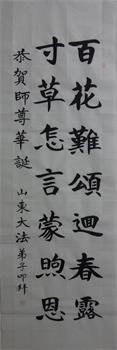 百花難頌迴春露
寸草怎言蒙煦恩
恭賀師尊華誕
山東大法弟子叩拜